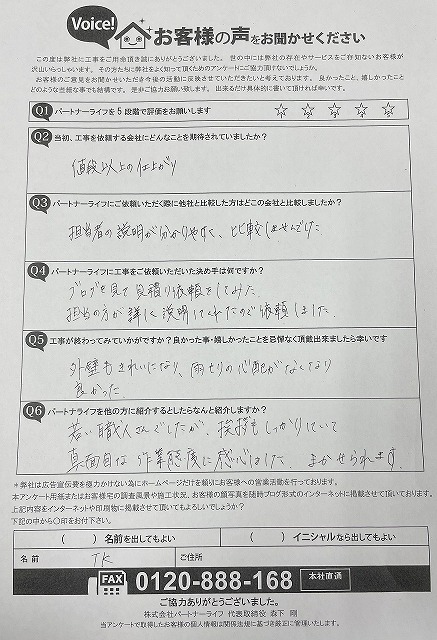 Voice!
お客様の声をお聞かせください
この度は弊社に工事をご用命頂き誠にありがとうございました。世の中には弊社の存在やサービスをご存知ないお客様が
沢山いらっしゃいます。その方たちに弊社をよく知って頂くためのアンケートにご協力頂けないでしょうか。
お客様のご意見をお聞かせいただき今後の活動に反映させていただきたいと考えております。良かったこと、嬉しかったこと
どのような些細な事でも結構です。是非ご協力お願い致します。出来るだけ具体的に書いて頂ければ幸いです。
Q1 パートナーライフを5段階で評価をお願いします ☆ ☆ ☆ ☆ ☆
Q2 当初、工事を依頼する会社にどんなことを期待されていましたか?
値段以上の仕上がり
Q3 パートナーライフにご依頼いただく際に他社と比較した方はどこの会社と比較しましたか?
担当者の説明が分かりやすく、比較しませんでした
Q4 パートナーライフに工事をご依頼いただいた決め手は何ですか?
ブログを見て見積り依頼をしてみた。
担当の方が詳しく説明してくれたので依頼しました。
Q5 工事が終わってみていかがですか?良かった事・嬉しかったことを忌憚なく頂戴出来ましたら幸いです
外壁もきれいになり、雨もりの心配がなくなり
良かった
Q6 パートナーライフを他の方に紹介するとしたらなんと紹介しますか?
若い職人さんでしたが、挨拶もしっかりしていて
真面目な作業態度に感心しました まかせられます。
*弊社は広告宣伝費を極力かけない為にホームページだけを頼りにお客様への営業活動を行っております。
本アンケート用紙またはお客様宅の調査風景や施工状況、お客様の顔写真を随時ブログ形式のインターネットに掲載させて頂いております。
上記内容をインターネットや印刷物に掲載させて頂いてもよろしいでしょうか?
下記の中から〇印をお付下さい。
( ) 名前を出してもよい ( ) イニシャルなら出してもよい
名前 TK ご住所
FAX 0120-888-168 本社直通
ご協力ありがとうございました。
株式会社パートナーライフ 代表取締役 森下 剛
当アンケートで取得したお客様の個人情報は関係法規に基づき厳正に管理いたします。